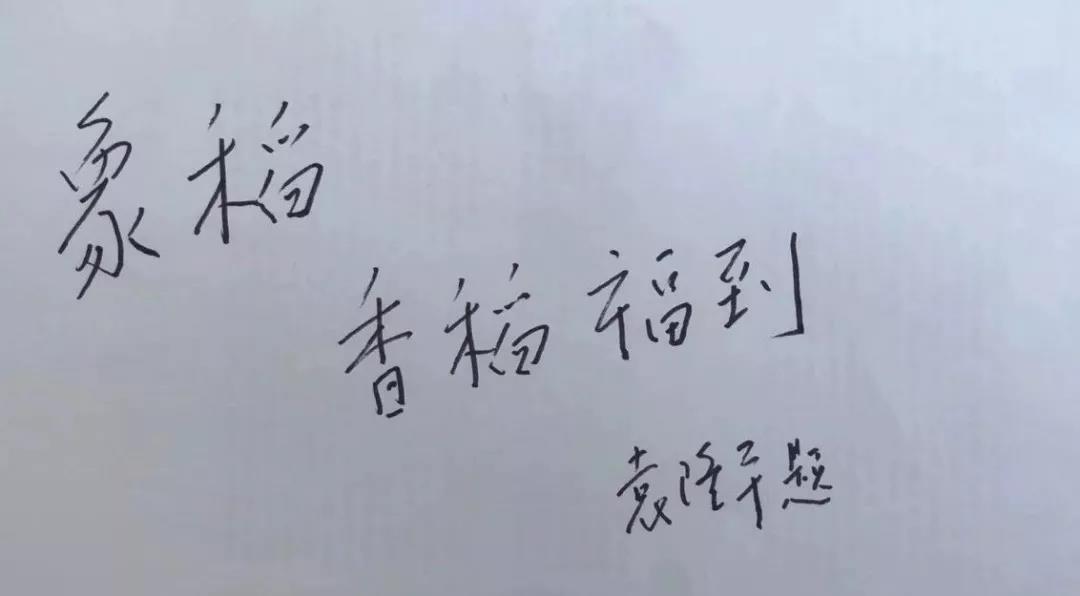 象稻
香稻福到
袁隆平题